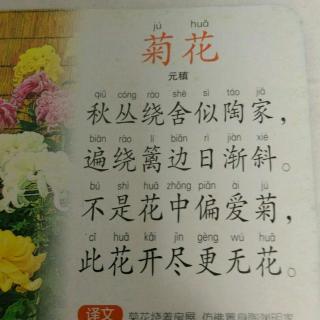 jú huā
菊花
元稹
qiū cóng rào shè sì táo jiā
秋丛绕舍似陶家，
biān rào lí biān rì jiàn xié
遍绕篱边日渐斜。
bú shì huā zhōng piān ài jú
不是花中偏爱菊，
cǐ huā kāi jìn gèng wú huā
此花开尽更无花。
译文 菊花绕着房屋，仿佛置身陶渊明家